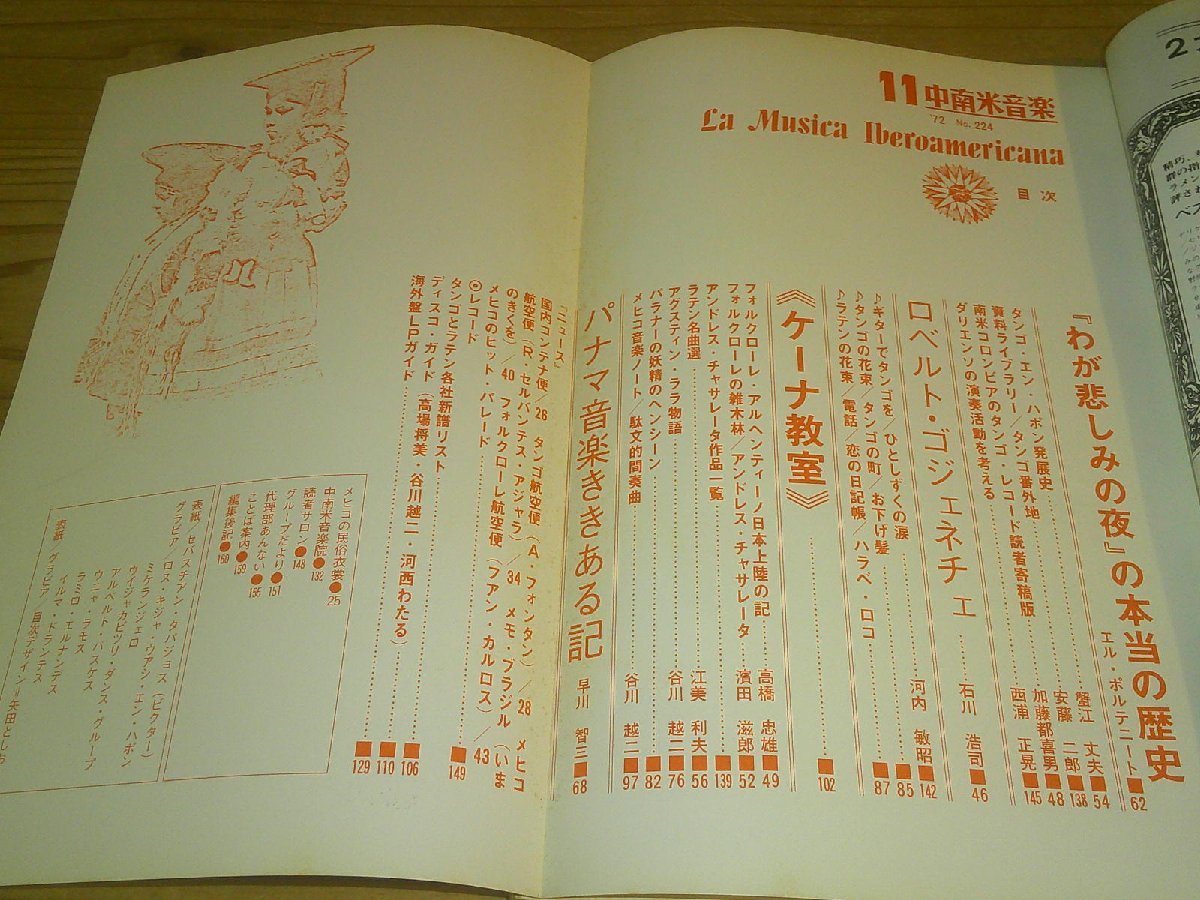 11 中南米音楽
'72 No. 224
La Musica Iberoamericana
目次
『わが悲しみの夜』の本当の歴史 エル・ポルテニート 62
タンゴ・エン・ハポン発展史 蟹江丈夫 54
資料ライブラリー/タンゴ番外地 安藤二郎 138
南米コロンビアのタンゴ・レコード読者寄稿版 加藤都喜男 48
ダリエンソの演奏活動を考える 西浦正晃 145
ロベルト・ゴジェネチェ 石川浩司 46
♪ギターでタンゴを/ひとしずくの涙 河内敏昭 142
♪タンゴの花束/タンゴの町/お下げ髪 85
♪ラテンの花束 電話/恋の日記帳/ハラベ・ロコ 87
《ケーナ教室》 102
フォルクローレ・アルヘンティーノ日本上陸の記 高橋忠雄 49
フォルクローレの雑木林/アンドレス・チャサレータ 濱田滋郎 52
アンドレス・チャサレータ作品一覧 139
ラテン名曲選 江美利夫 56
アグスティン・ララ物語 谷川越二 76
パラナーの妖精のヘンシーン 82
メヒコ音楽ノート/駄文的間奏曲 谷川越二 97
パナマ音楽ききある記 早川智三 68
『ニュース』
国内コンテナ便/26 タンゴ航空便(A・フォンタン)/28 メヒコ
航空便(R・セルバンテス・アジャラ)/34 メモ・ブラジル(いま
のきくを)/40 フォルクローレ航空便(フアン・カルロス)/43
◎レコード
メヒコのヒット・パレード 149
タンゴとラテン各社新譜リスト 106
ディスコ・ガイド(高場将美・谷川越二・河西わたる) 110
海外盤LPガイド 129
メヒコの民俗衣裳●25
中南米音楽院●132
読者サロン●148
グループだより●151
代理部あんない●155
ことば案内●159
編集後記●160
表紙 セバスチアン・タパジョス(ビクター)
グラビア ロス・キジャ・ウアシ・エン・ハポン
ミケランジェロ
ウイジャカピツリ・ダンス・グループ
アルベルト・バスケス
ウーゴ・ラモス
ラミロ・エルナンデス
イルマ・ドランテス
表紙 グラビア 目次デザイン=矢田としお